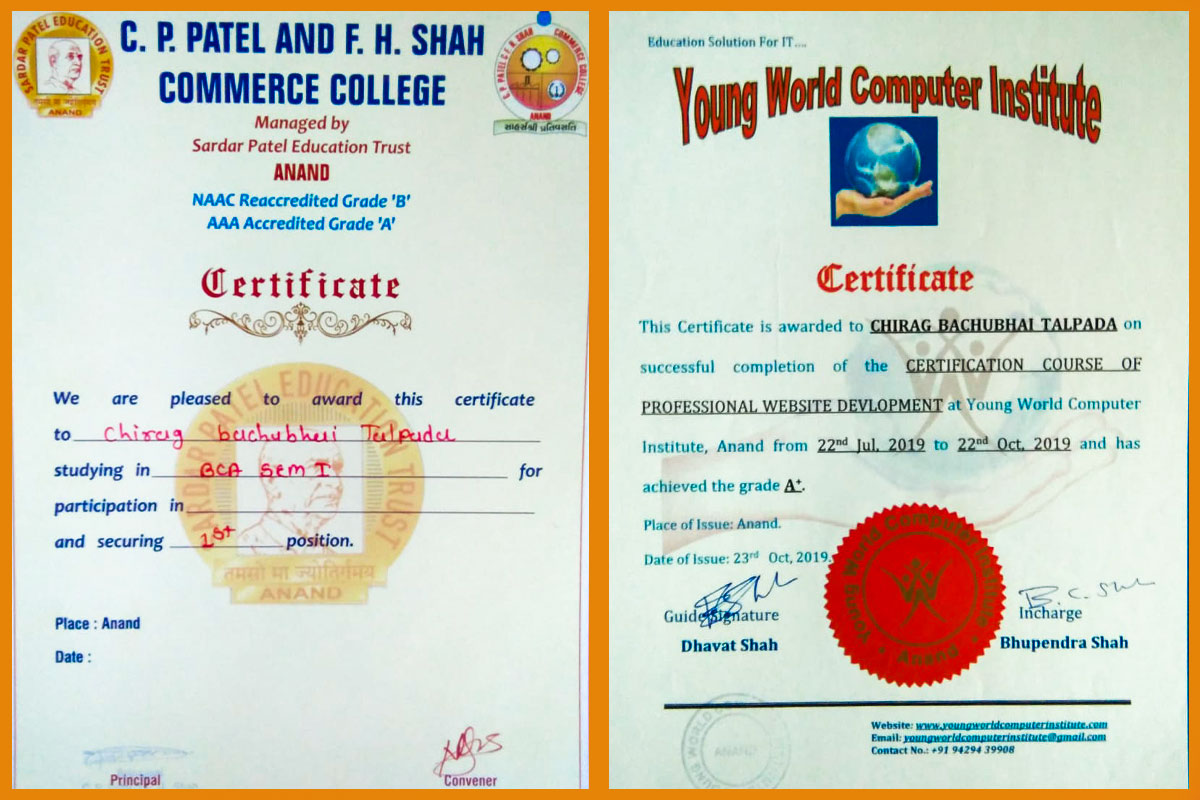 SARDAR PATEL EDUCATION TRUST
तमसो मा ज्योतिर्गमय
ANAND
C. P. PATEL AND F. H. SHAH
COMMERCE COLLEGE
C. P. PATEL & F. H. SHAH COMMERCE COLLEGE
ANAND
Managed by
Sardar Patel Education Trust
ANAND
NAAC Reaccredited Grade 'B'
AAA Accredited Grade 'A'
Certificate
SARDAR PATEL EDUCATION TRUST
We are pleased to award this certificate
to Chirag bachubhai Talpada
studying in BCA Sem I for
participation in
and securing 1st position.
तमसो मा ज्योतिर्गमय
ANAND
Place : Anand
Date :
Principal
Convener
Education Solution For IT....
Young World Computer Institute
Certificate
This Certificate is awarded to CHIRAG BACHUBHAI TALPADA on
successful completion of the CERTIFICATION COURSE OF
PROFESSIONAL WEBSITE DEVLOPMENT at Young World Computer
Institute, Anand from 22nd Jul, 2019 to 22nd Oct, 2019 and has
achieved the grade A+.
Place of Issue: Anand.
Date of Issue: 23rd Oct, 2019.
Young World Computer Institute
Anand
B. C. Shah
Guide Signature
Incharge
Dhavat Shah
Bhupendra Shah
ANAND
Website: www.youngworldcomputerinstitute.com
Email: youngworldcomputerinstitute@gmail.com
Contact No.: +91 94294 39908